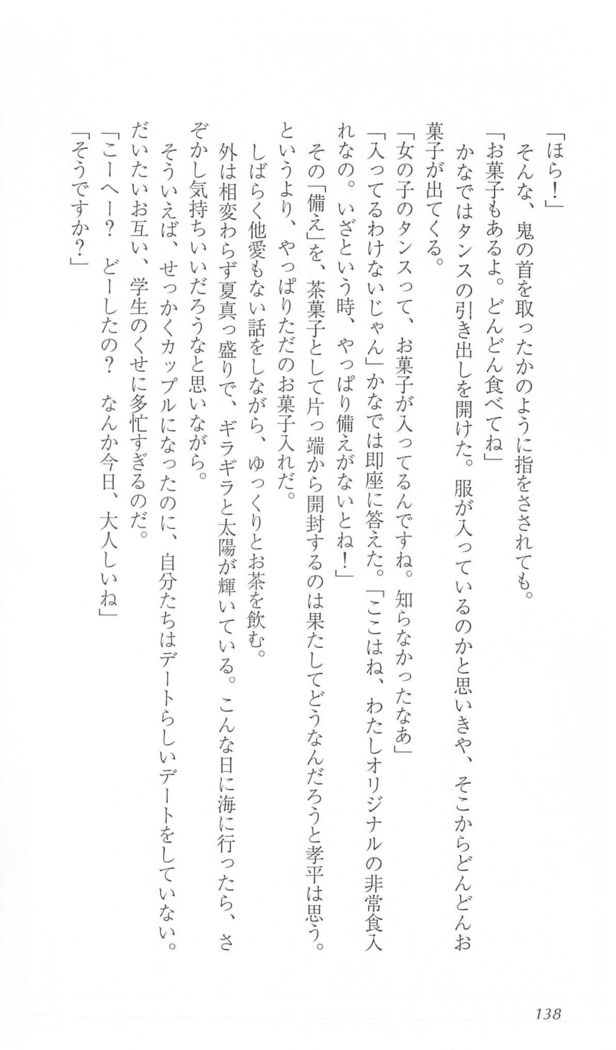 「ほら！」
　そんな、鬼の首を取ったかのように指をさされても。
「お菓子もあるよ。どんどん食べてね」
　かなではタンスの引き出しを開けた。服が入っているのかと思いきや、そこからどんどんお
菓子が出てくる。
「女の子のタンスって、お菓子が入ってるんですね。知らなかったなあ」
「入ってるわけないじゃん」かなでは即座に答えた。「ここはね、わたしオリジナルの非常食入
れなの。いざという時、やっぱり備えがないとね！」
　その「備え」を、茶菓子として片っ端から開封するのは果たしてどうなんだろうと孝平は思う。
というより、やっぱりただのお菓子入れだ。
　しばらく他愛もない話をしながら、ゆっくりとお茶を飲む。
　外は相変わらず夏真っ盛りで、ギラギラと太陽が輝いている。こんな日に海に行ったら、さ
ぞかし気持ちいいだろうなと思いながら。
　そういえば、せっかくカップルになったのに、自分たちはデートらしいデートをしていない。
だいたいお互い、学生のくせに多忙すぎるのだ。
「こーへー？　どーしたの？　なんか今日、大人しいね」
「そうですか？」
138